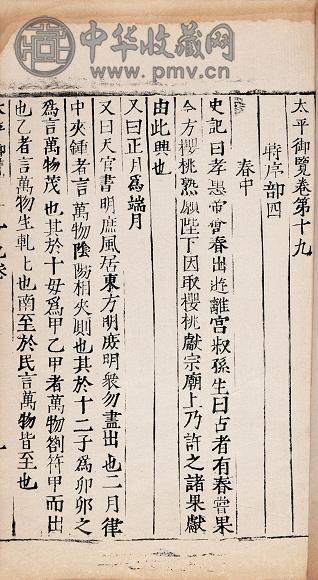 中华收藏网
www.pmv.cn
太平御覽卷第十九
時序部四
春中
史記曰孝惠帝嘗春出遊離宫叔孫生曰古者有春嘗果
今方櫻桃熟願陛下因取櫻桃獻宗廟上乃許之諸果獻
由此興也
又曰正月爲端月
又曰天官書明庶風居東方明庶明衆勿盡出也二月律
中夾鍾者言萬物陰陽相夾則也其於十二子爲卯卯之
爲言萬物茂也其於十母爲甲乙甲者萬物剖符甲而出
也乙者言萬物生軋上也南至於氏言萬物皆至也